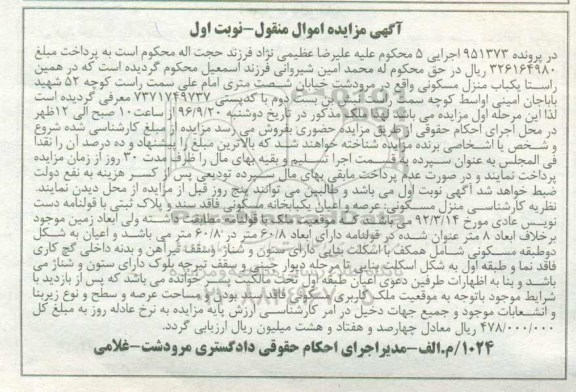 آگهی مزایده اموال منقول-نوبت اول
در پرونده ۹۵۱۳۷۳ اجرایی ۵ محکوم علیه علیرضا عظیمی نژاد فرزند حجت اله محکوم است به پرداخت مبلغ
۳۲۶۱۶۴۹۸۰ ریال در حق محکوم له محمد امین شیروانی فرزند اسمعیل محکوم گردیده است که در همین
راستا یکباب منزل مسکونی واقع در مرودشت خیابان شصت متری امام علی سمت راست کوچه ۵۲ شهید
باباجان امینی اواسط کوچه سمت بن بست دوم با کدپستی ۷۳۷۱۷۴۹۷۳۷ معرفی گردیده است
لذا این مرحله اول مزایده می باشد لذا ملک مذکور در تاریخ دوشنبه ۹۶/۹/۲۰ از ساعت ۱۰ صبح الی ۱۲ظهر
در محل اجرای احکام حقوقی از طریق مزایده حضوری بفروش می رسد مزایده از مبلغ کارشناسی شده شروع
و شخص یا اشخاصی برنده مزایده شناخته خواهند شد که بالاترین مبلغ را پیشنهاد و ده درصد آن را نقدا
فی المجلس به عنوان سپرده به قسمت اجرا تسلیم و بقیه بهای مال را ظرف مدت ۳۰ روز از زمان مزایده
پرداخت نمایند و در صورت عدم پرداخت مابقی بهای مال سپرده تودیعی پس از کسر هزینه به نفع دولت
ضبط خواهد شد آگهی نوبت اول می باشد و طالبین می توانند پنج روز قبل از مزایده از محل دیدن نمایند.
نظریه کارشناسی منزل مسکونی: عرصه و اعیان یکبابخانه مسکونی فاقد سند و پلاک ثبتی با قولنامه دست
نویس عادی مورخ ۹۲/۳/۱۴ می باشد که موقعیت ملک با قولنامه مطابقت داشته ولی ابعاد زمین موجود
برخلاف ابعاد ۸ متر عنوان شده در قولنامه دارای ابعاد ۶۰/۸ متر در ۶۰/۸ متر می باشد و اعیان به شکل
دوطبقه مسکونی شامل همکف با اسکلت بنایی دارای ستون و شناژ و سقف تیرآهن و بدنه داخلی گچ کاری
فاقد نما و طبقه اول به شکل اسکلت بنایی تا مرحله دیوار چینی و سقف تیرچه بلوک دارای ستون و شناژ می
باشد و بنا به اظهارات طرفین دعوی اعیان طبقه اول تحت مالکیت پسر خوانده می باشد که پس از بازدید با
شرایط موجود باتوجه به موقعیت ملک کاربری مسکونی فاقد سند بودن و مساحت عرصه و سطح و نوع زیربنا
و انشعابات موجود و جمیع جهات دخیل در امر کارشناسی ارزش پایه مزایده به نرخ عادله روز به مبلغ کل
۴۷۸/۰۰۰/۰۰۰ ریال معادل چهارصد و هفتاد و هشت میلیون ریال ارزیابی گردد.
۱۰۲۴/م.الف-مدیراجرای احکام حقوقی دادگستری مرودشت-غلامی